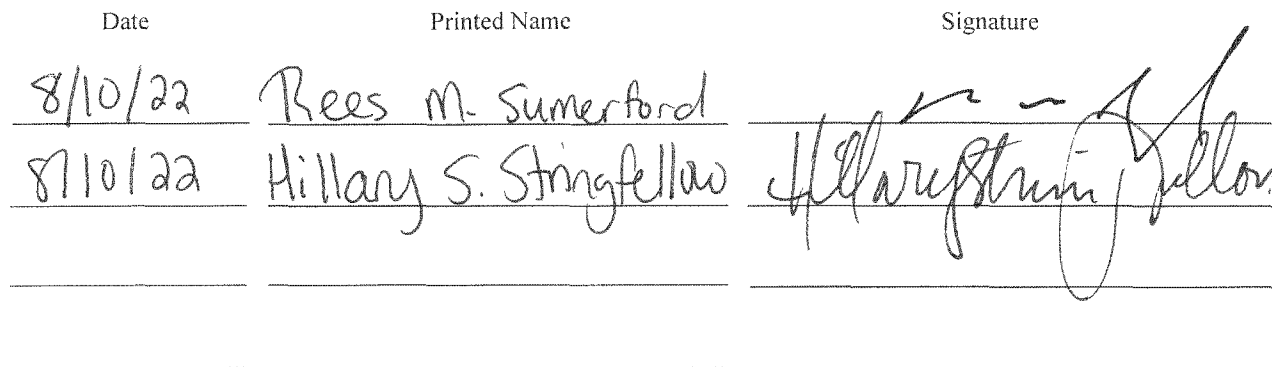 Date Printed Name Signature
8/10/22 Rees M. Sumerford
8/10/22 Hillary S. Stringfellow Hillary Stringfellow